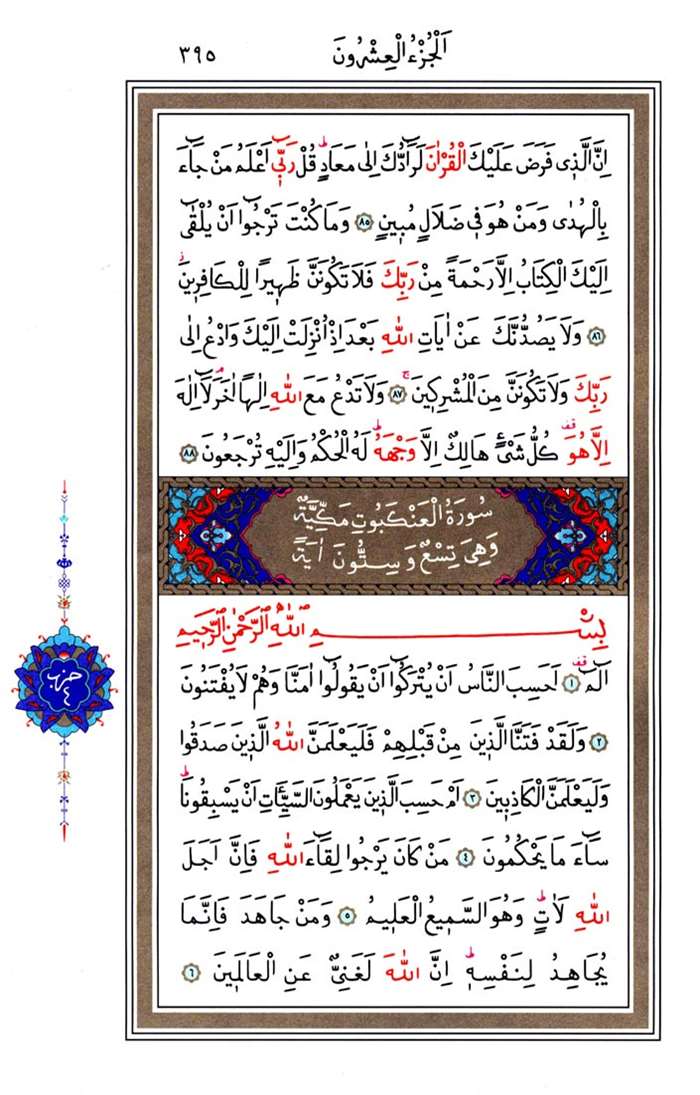 اَلْجُزْءُ الْعِشْرُونَ ٣٩٥
اِنَّ الَّذ۪ي فَرَضَ عَلَيْكَ الْقُرْاٰنَ لَرَٓادُّكَ اِلٰى مَعَادٍۜ قُلْ رَبّ۪ٓي اَعْلَمُ مَنْ جَٓاءَ
بِالْهُدٰى وَمَنْ هُوَ ف۪ي ضَلَالٍ مُب۪ينٍ ﴿٨٥﴾ وَمَا كُنْتَ تَرْجُٓوا اَنْ يُلْقٰٓى
اِلَيْكَ الْكِتَابُ اِلَّا رَحْمَةً مِنْ رَبِّكَ فَلَا تَكُونَنَّ ظَه۪يرًا لِلْكَافِر۪ينَۘ
﴿٨٦﴾ وَلَا يَصُدُّنَّكَ عَنْ اٰيَاتِ اللّٰهِ بَعْدَ اِذْ اُنْزِلَتْ اِلَيْكَ وَادْعُ اِلٰى
رَبِّكَ وَلَا تَكُونَنَّ مِنَ الْمُشْرِك۪ينَۚ ﴿٨٧﴾ وَلَا تَدْعُ مَعَ اللّٰهِ اِلٰهًا اٰخَرَۢ لَٓا اِلٰهَ
اِلَّا هُوَ۠ كُلُّ شَيْءٍ هَالِكٌ اِلَّا وَجْهَهُۜ لَهُ الْحُكْمُ وَاِلَيْهِ تُرْجَعُونَ ﴿٨٨﴾
سُورَةُ الْعَنْكَبُوتِ مَكِّيَّةٌ
وَهِيَ تِسْعٌ وَسِتُّونَ اٰيَةً
بِسْمِ اللّٰهِ الرَّحْمٰنِ الرَّح۪يمِ
الٓمٓ۠ ﴿١﴾ اَحَسِبَ النَّاسُ اَنْ يُتْرَكُٓوا اَنْ يَقُولُٓوا اٰمَنَّا وَهُمْ لَا يُفْتَنُونَ
﴿٢﴾ وَلَقَدْ فَتَنَّا الَّذ۪ينَ مِنْ قَبْلِهِمْ فَلَيَعْلَمَنَّ اللّٰهُ الَّذ۪ينَ صَدَقُوا
وَلَيَعْلَمَنَّ الْكَاذِب۪ينَ ﴿٣﴾ اَمْ حَسِبَ الَّذ۪ينَ يَعْمَلُونَ السَّيِّـَٔاتِ اَنْ يَسْبِقُونَاۜ
سَٓاءَ مَا يَحْكُمُونَ ﴿٤﴾ مَنْ كَانَ يَرْجُوا لِقَٓاءَ اللّٰهِ فَاِنَّ اَجَلَ
اللّٰهِ لَاٰتٍۜ وَهُوَ السَّم۪يعُ الْعَل۪يمُ ﴿٥﴾ وَمَنْ جَاهَدَ فَاِنَّمَا
يُجَاهِدُ لِنَفْسِه۪ۜ اِنَّ اللّٰهَ لَغَنِيٌّ عَنِ الْعَالَم۪ينَ ﴿٦﴾
حزب
٤